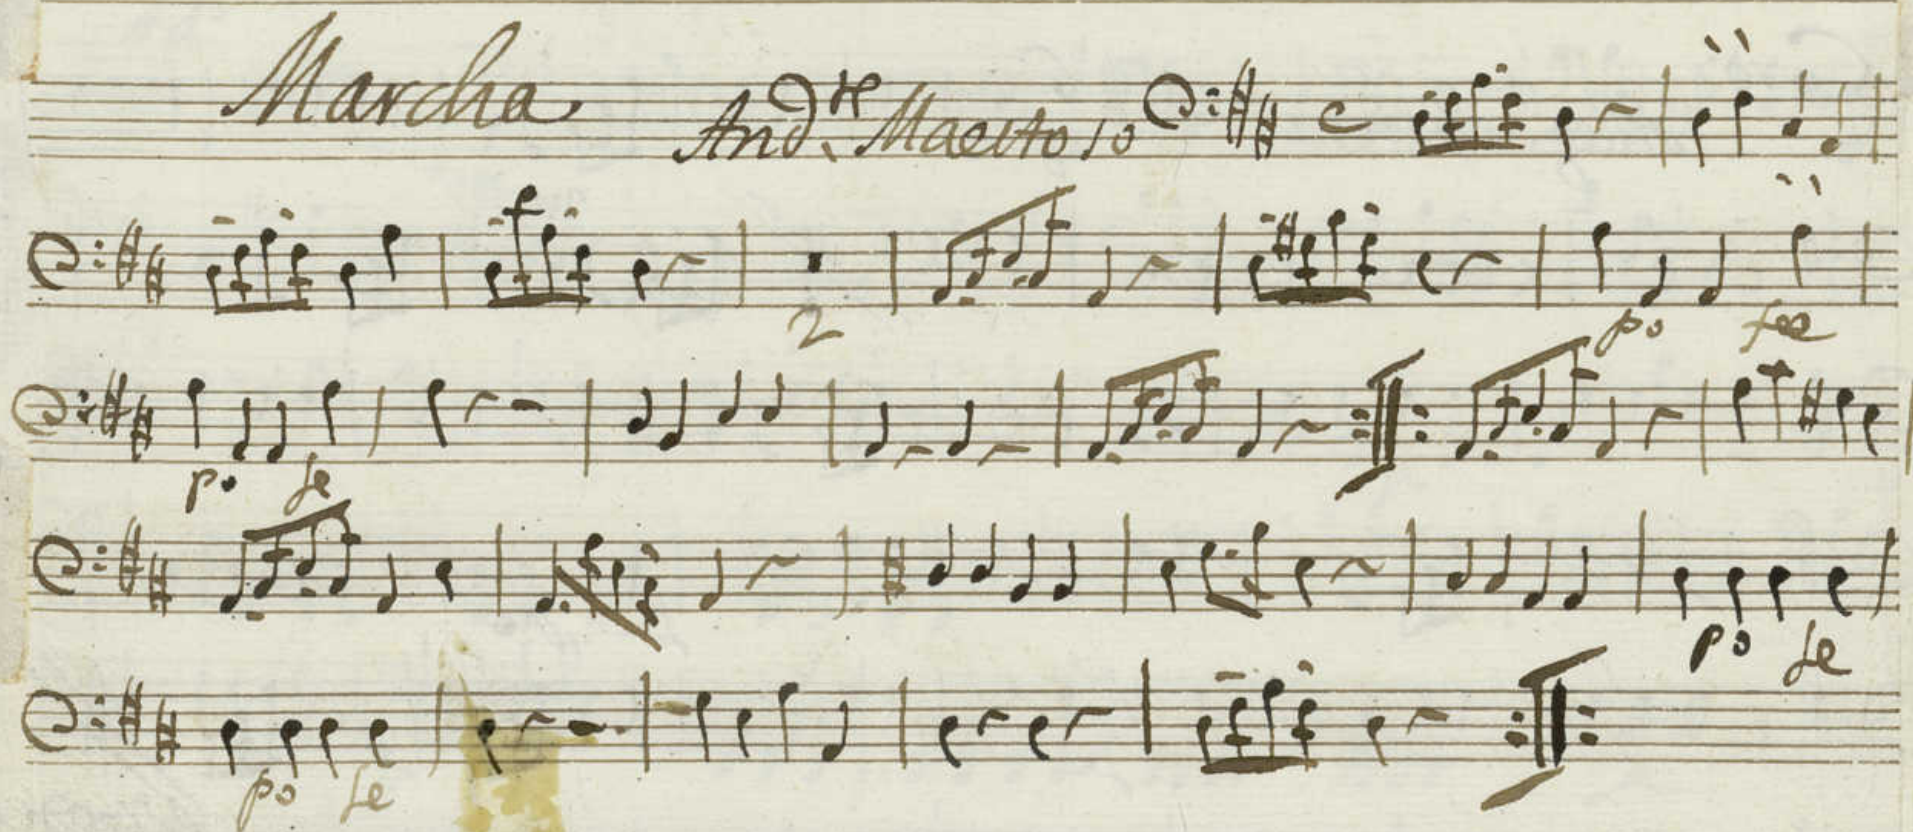 Marcha And.te Maestoso
2 po fe
po fe
po fe
po fe